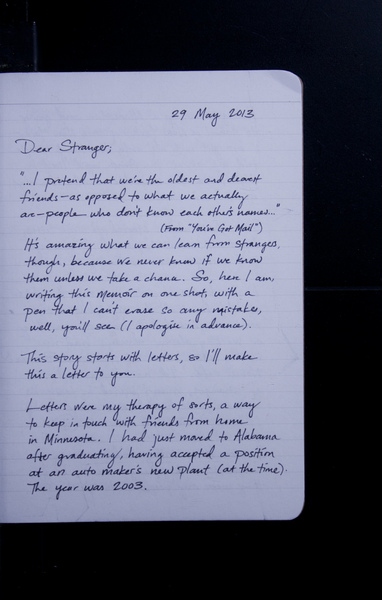 29 May 2013
Dear Stranger,
"...I pretend that we're the oldest and dearest
friends—as opposed to what we actually
are—people who don't know each other's names..."
(From "You've Got Mail")
It's amazing what we can learn from strangers,
though, because we never know if we know
them unless we take a chance. So, here I am,
writing this memoir on one shot, with a
pen that I can't erase so any mistakes,
well, you'll see (I apologize in advance).
This story starts with letters, so I'll make
this a letter to you.
Letters were my therapy of sorts, a way
to keep in touch with friends from home
in Minnesota. I had just moved to Alabama
after graduating, having accepted a position
at an auto maker's new plant (at the time).
The year was 2003.